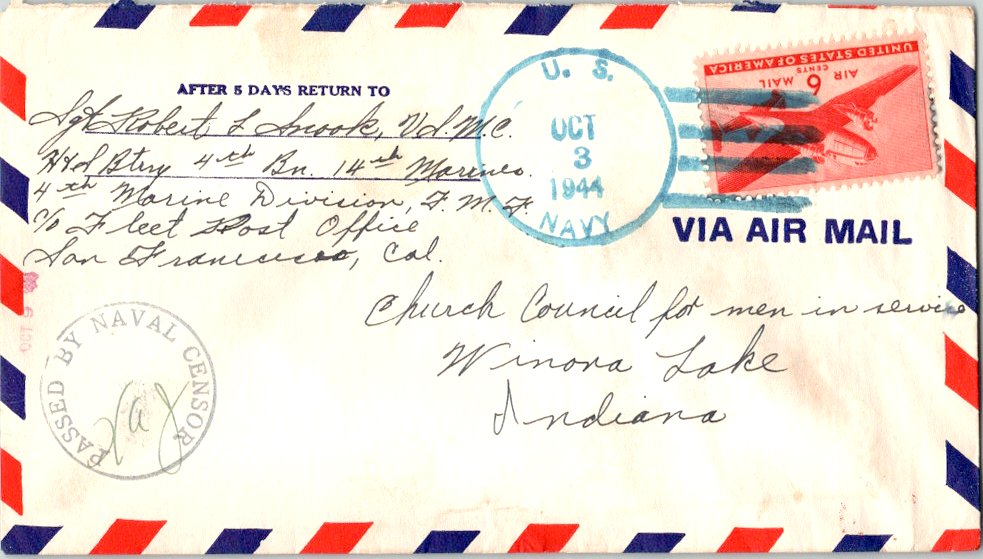 AFTER 5 DAYS RETURN TO
Sgt Robert L Snook, U.S.M.C.
H&S Btry 4th Bn. 14th Marines.
4th Marine Division, F.M.F.
c/o Fleet Post Office
San Francisco, Cal.
U. S.
OCT
3
1944
NAVY
UNITED STATES OF AMERICA
6
CENTS
AIR MAIL
VIA AIR MAIL
Church Council for men in service
Winona Lake
Indiana
OCT 9
PASSED BY NAVAL CENSOR